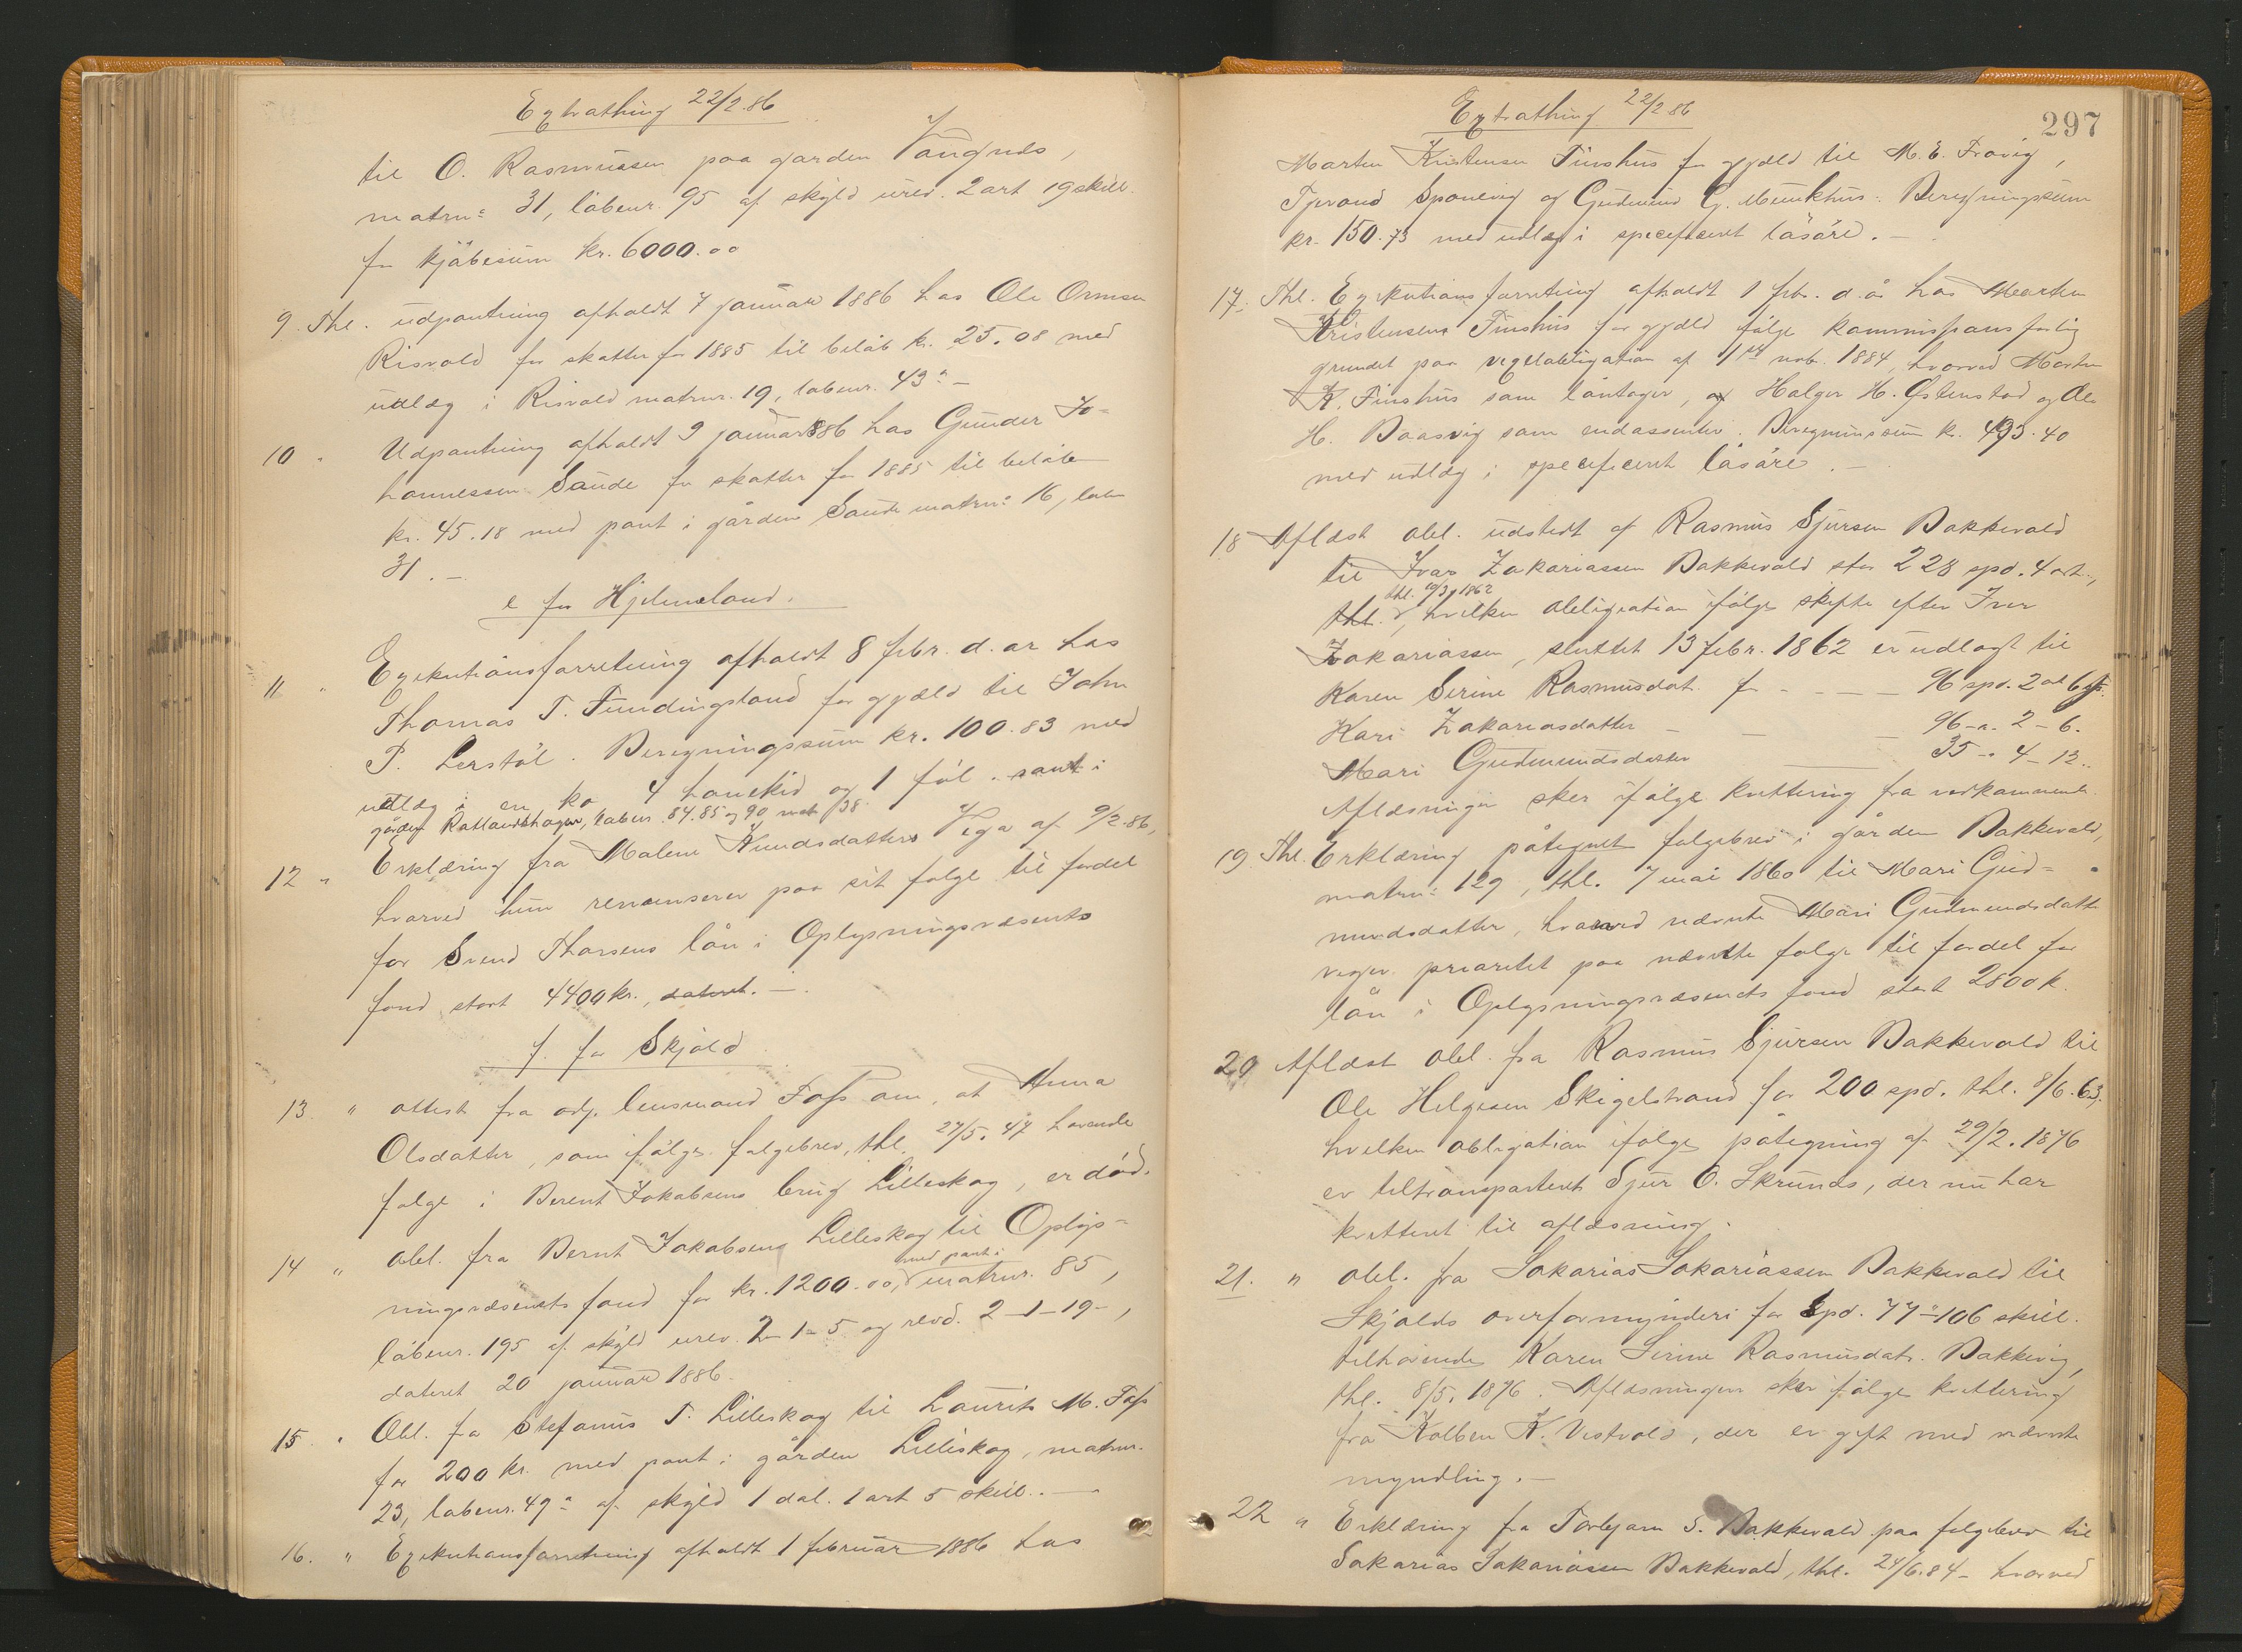 Extrathing 22/2 86
til O. Rasmussen paa gården Vangnes,
matrn: 31, löbenr. 95 af skyld urev. 2 ort 19 skill.
for kjöbesum kr. 6000.00
9. Thl. udpantning afholdt 7 januar 1886 hos Ole Ormsen
Risvold for skatter for 1885 til beløb kr. 25.08 med
udlæg i Risvold matrnr. 19, löbenr. 43a –
10 " Udpantning afholdt 9 januar 1886 hos Gunder Jo-
hannessen Sande for skatter for 1885 til beløb
kr. 45.18 med pant i gården Sande matrn: 16, løbn
31. –
e for Hjelmeland.
11 " Exekutionsforretning afholdt 8 febr. d. ar hos
Thomas T. Fundingsland for gjæld til John
P. Lerstöl. Beregningssum kr. 100.83 med
udlæg i en ko 4 hanekid og 1 föl. samt i
gården Ratlandshagen, løbenr. 84.85 og 90 matr 38.
12 " Erklæring fra Malene Knudsdatter Vega af 9/2.86,
hvorved hun renonserer paa sit folge til fordel
for Svend Thorsens lån i Oplysningsvæsenets
fond stort 4400 kr., dateret. –
f. for Skjold
13 " attest fra adj. lensmand Foss om, at Anna
Olsdatter, som ifölge folgebrev, thl. 27/5.47 havende
folge i Berent Jakobsens brug Lilleskog, er död.
14 " obl. fra Bernt Jakobsens Lilleskog til Oplys-
ningsvæsenets fond for kr. 1200.00, med pant i matrnr. 85,
löbenr. 195 af skyld urev. 2-1-5 og revd. 2-1-19-,
dateret 20 januar 1886.
15 " Obl. fra Stefanus T. Lilleskog til Laurits M. Foss
for 200 kr. med pant i gården Lilleskog, matrnr.
23, løbenr. 49a af skyld 1 dal. 1 ort 5 skill. –
16. " Exekutionsforretning afholdt 1 februar 1886 hos
297
Extrathing 22/2 86
Morten Kristensen Finshus for gjæld til M. E. Frøvig,
Tjerand Sponevig og Gudmund G. Munkhus. Beregningssum
kr. 150.73 med udlæg i specificeret läsöre. –
17. Thl. Exekutionsforretning afholdt 1 febr. d. år hos Morten
Kristensens Finshus for gjæld ifölge kommissionsforlig
grundet paa vexelobligation af 1ste nob. 1884, hvorved Morten
K. Finshus som låntager, og Holger H. Østenstad og Ole
H. Baasvig som endossenter. Beregningssum kr. 493.40
med udlæg i specificeret läsöre. –
18 Aflæst obl. udstedt af Rasmus Sjursen Bakkevold
til Ivar Zakariassen Bakkevold stor 228 spd. 4 ort.,
thl. 10/3 1862
thl. , hvilken obligation ifölge skifte efter Iver
Zakariassen, sluttet 13 febr. 1862 er udlagt til
Karen Serine Rasmusdat. for - - – 96 spd. 2 ort 6 s.
Kari Zakariasdatter – – – 96 - " 2 - 6.
Mari Gudmundsdatter – 35 - " 4 - 12.
Aflæsningen sker ifölge kvittering fra vedkommende.
19 Thl. Erklæring påtegnet folgebrev i gården Bakkevold,
matrn: 129, thl. 7 mai 1860 til Mari Gud-
mundsdatter, hvorved nævnte Mari Gudmundsdatter
viger prioritet paa nævnte folge til fordel for
lån i Oplysningsvæsenets fond stort 2800 k.
20 Aflæst obl. fra Rasmus Sjursen Bakkevold til
Ole Helgesen Skigelstrand for 200 spd. thl. 8/6.63,
hvilken obligation ifölge påtegning af 29/2.1876
er tiltransporteret Sjur O. Skrunds, der nu har
kvitteret til aflæsning.
21. " obl. fra Sakarias Sakariassen Bakkevold til
Skjolds overformynderi for Spd. 77-"-106 skill.
tilhörende Karen Serine Rasmusdatr. Bakkevig,
thl. 8/5.1876. Aflæsningen sker ifölge kvittering
fra Kolben K. Vestvold, der er gift med nævnte
myndling. –
22 " Erklæring fra Torbjørn S. Bakkevold paa folgebrev til
Sakarias Sakariassen Bakkevold, thl. 24/6.84 – hvorved